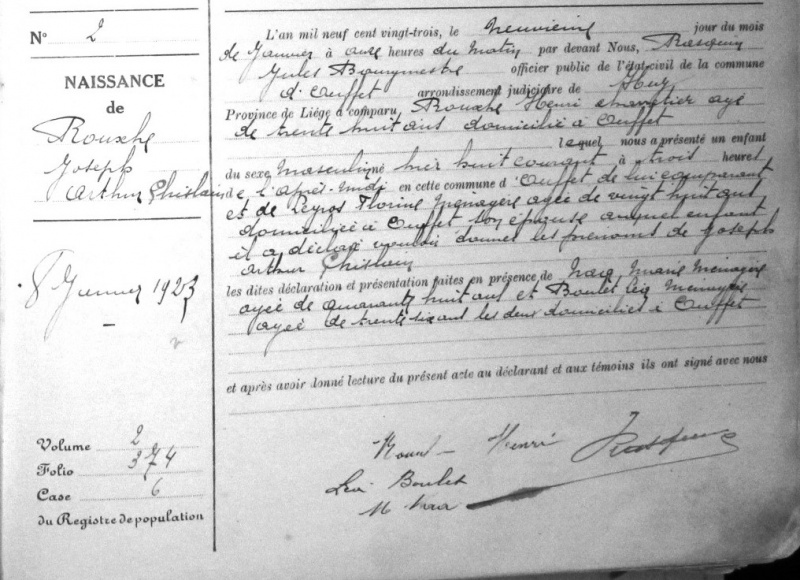 N° 2
NAISSANCE
de
Rouxhe
Joseph
Arthur Ghislain
8 Janvier 1923
Volume 2
Folio 374
Case 6
du Registre de population
L'an mil neuf cent vingt-trois, le neuvième jour du mois
de Janvier à onze heures du matin par devant Nous, Rasquin
Jules Bourgmestre officier public de l'état-civil de la commune
d'Ouffet arrondissement judiciaire de Huy
Province de Liége a comparu, Rouxhe Henri ayé
de trente huit ans domicilié à Ouffet
lequel nous a présenté un enfant
du sexe masculin né hier huit courant à trois heures
de l'après-midi en cette commune d'Ouffet de lui comparant
et de Florine ménagère agée de vingt huit ans
domiciliée à Ouffet son épouse auquel enfant
il a déclaré vouloir donner les prénoms de Joseph
Arthur Ghislain
les dites déclaration et présentation faites en présence de Marie Ménagère
agée de quarante huit ans et Boulet Léa Ménagère
agée de trente six ans les deux domiciliés à Ouffet
et après avoir donné lecture du présent acte au déclarant et aux témoins ils ont signé avec nous
Henri Rasquin
Léa Boulet
M